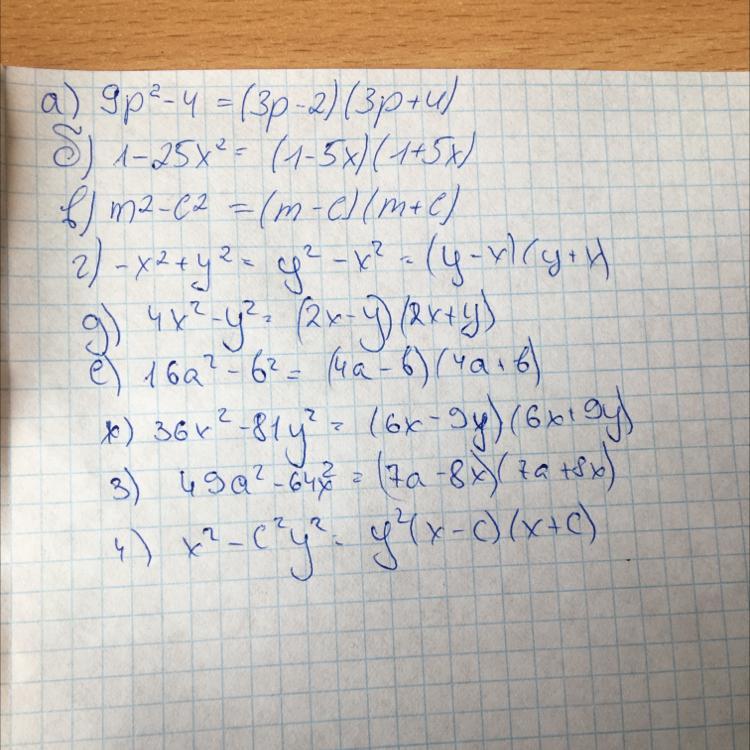 а) 9p² - 4 = (3p - 2)(3p + 4)
б) 1 - 25x² = (1 - 5x)(1 + 5x)
в) m² - c² = (m - c)(m + c)
г) -x² + y² = y² - x² = (y - x)(y + x)
д) 4x² - y² = (2x - y)(2x + y)
е) 16a² - b² = (4a - b)(4a + b)
ж) 36x² - 81y² = (6x - 9y)(6x + 9y)
з) 49a² - 64x² = (7a - 8x)(7a + 8x)
и) x² - c²y² = y²(x - c)(x + c)